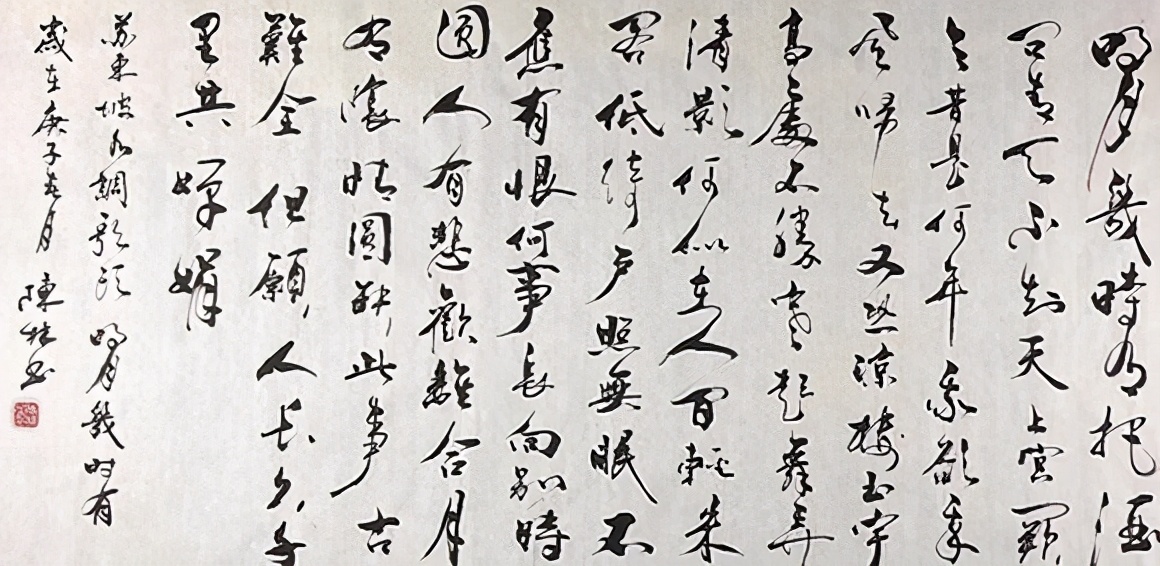 明月幾時有把酒
问青天不知天上宫闕
今昔是何年我欲乘
风歸去又恐涼樓玉宇
高々處不勝寒起舞弄
清影何似在人间轉朱
阁低绮户照無眠不
應有恨何事長向别時
圆人有悲歡離合月
有陰晴圓缺此事古
難全但願人長久千
里共婵娟
苏東坡水調歌頭 明月幾时有
歲在庚子春月 陳 书